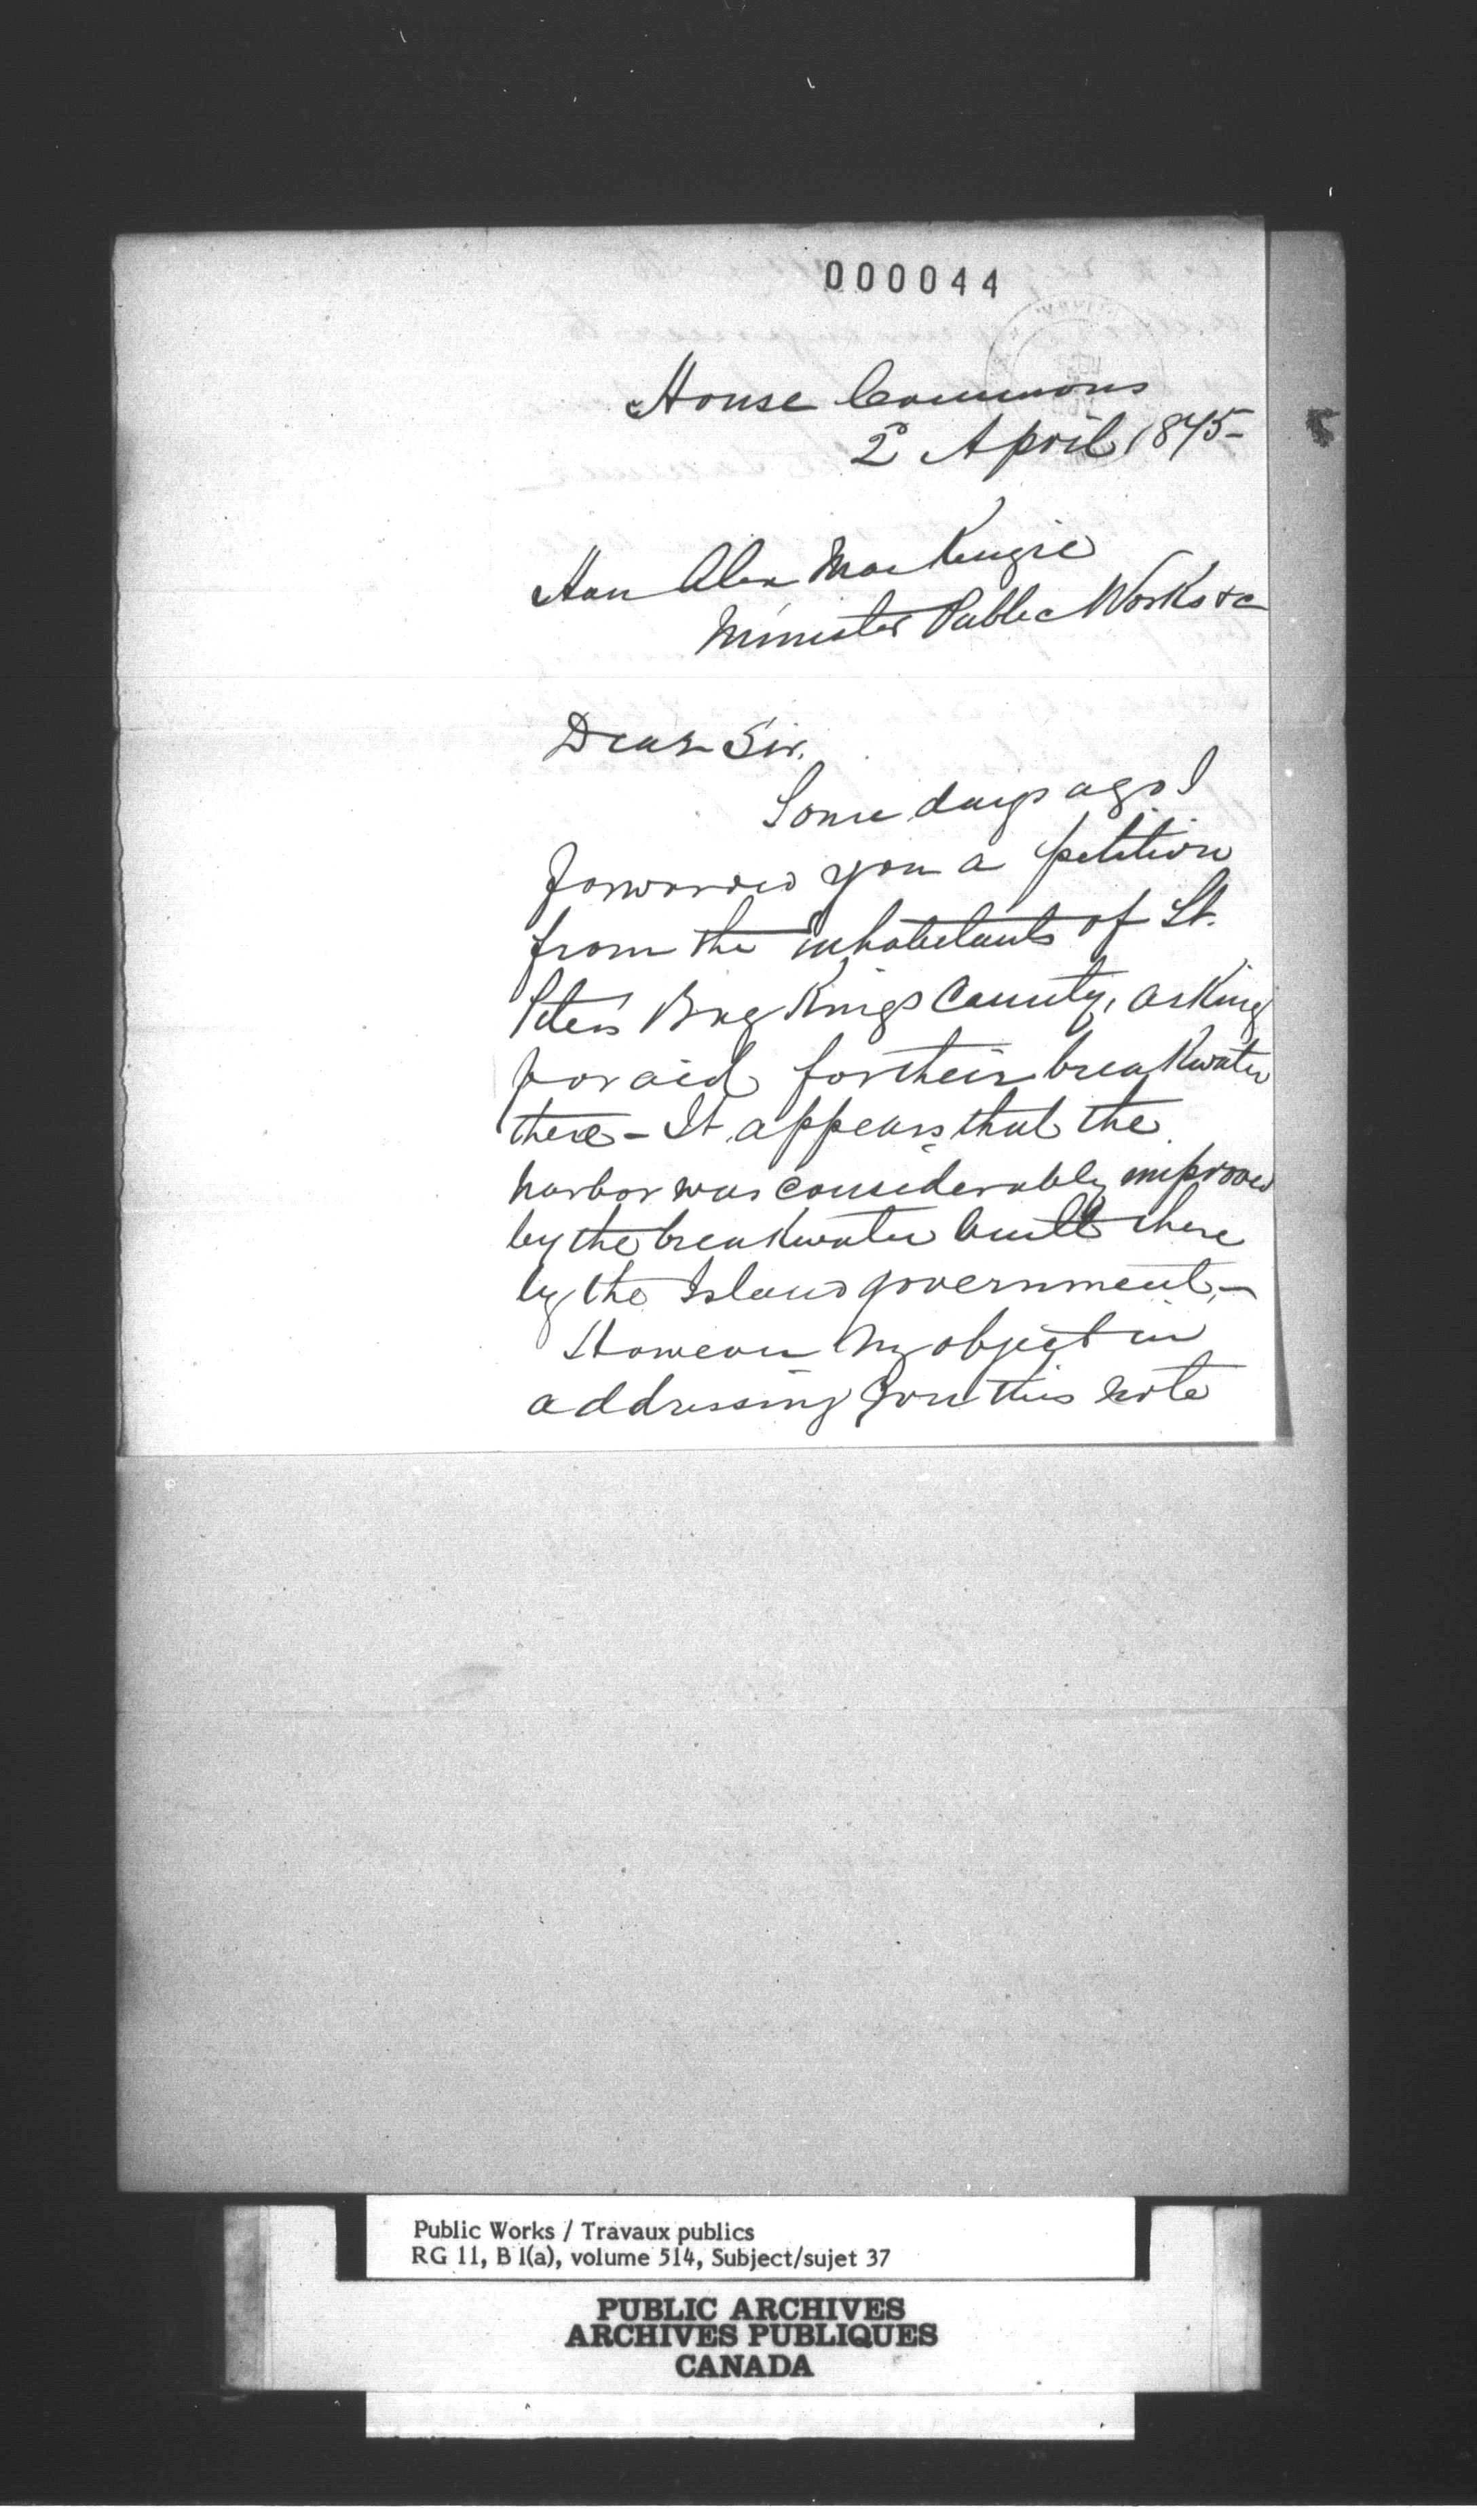 000044
House Commons
2d April 1875-
Hon Alex MacKenzie
Minister Public Works &c
Dear Sir.
Some days ago I
forwarded you a petition
from the inhabitants of St.
Peters Bay Kings County, asking
for aid for their breakwater
there - It appears that the
harbor was considerably improved
by the breakwater built there
by the Island government. -
However my object in
addressing you this note
Public Works / Travaux publics
RG 11, B 1(a), volume 514, Subject/sujet 37
PUBLIC ARCHIVES
ARCHIVES PUBLIQUES
CANADA